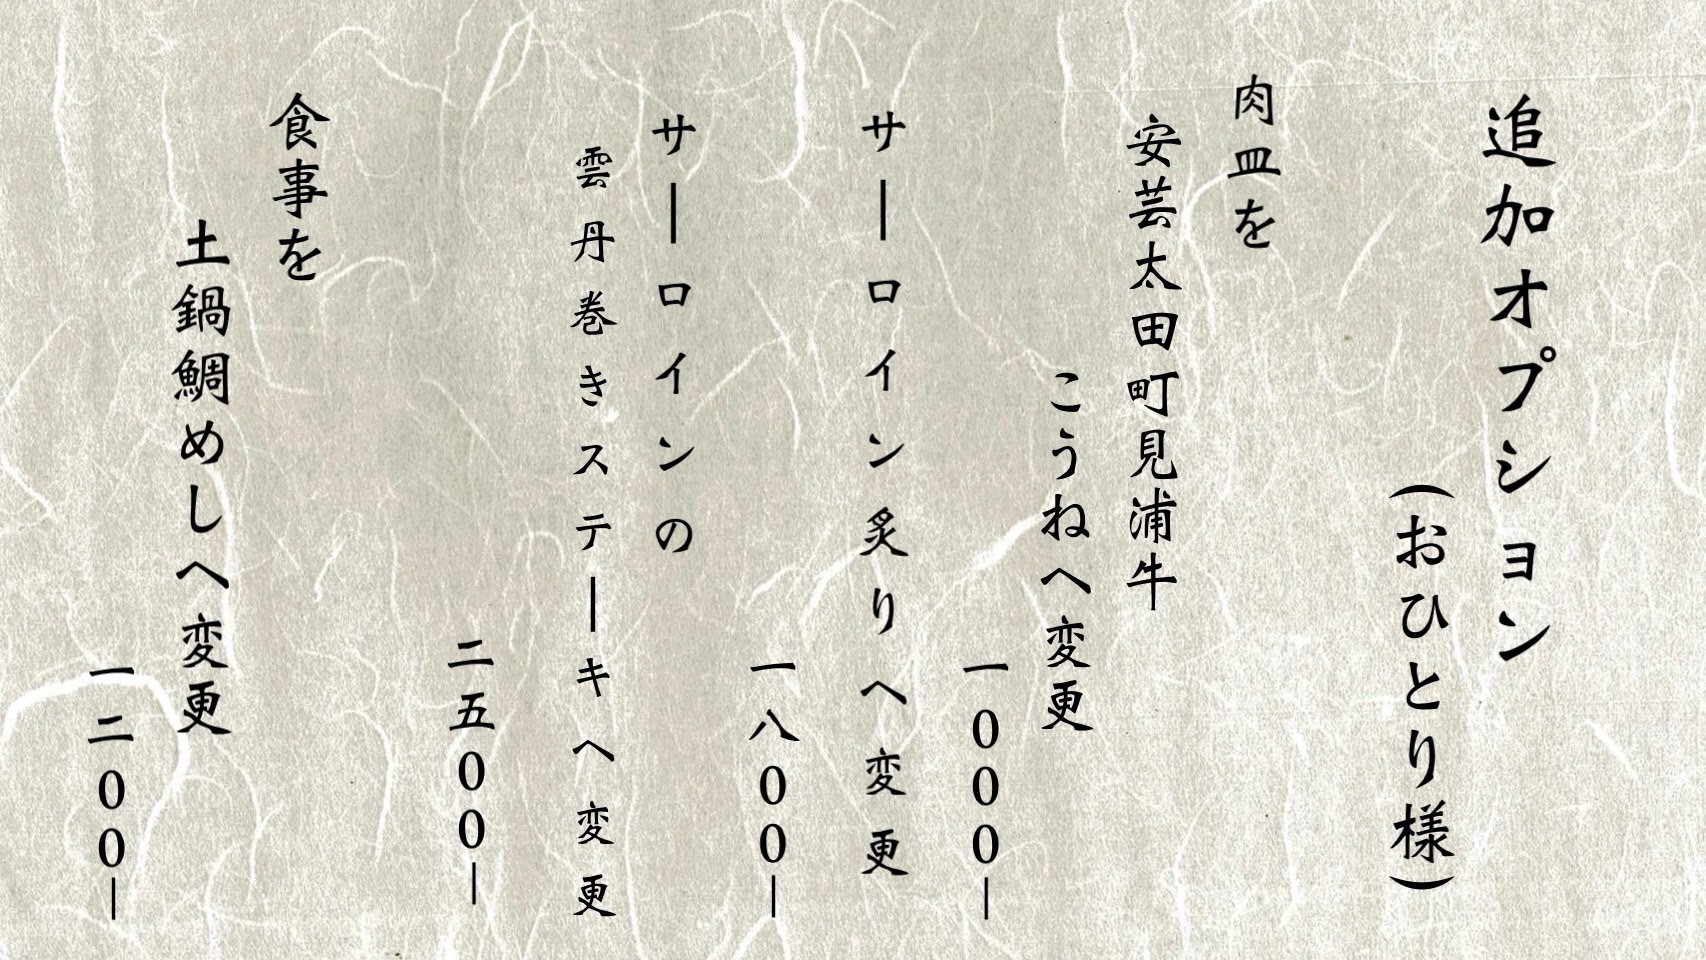 追加オプション
（おひとり様）
肉皿を
安芸太田町見浦牛
こうねへ変更
一０００ー
サーロイン炙りへ変更
一八００ー
サーロインの
雲丹巻きステーキへ変更
二五００ー
食事を
土鍋鯛めしへ変更
一二００ー